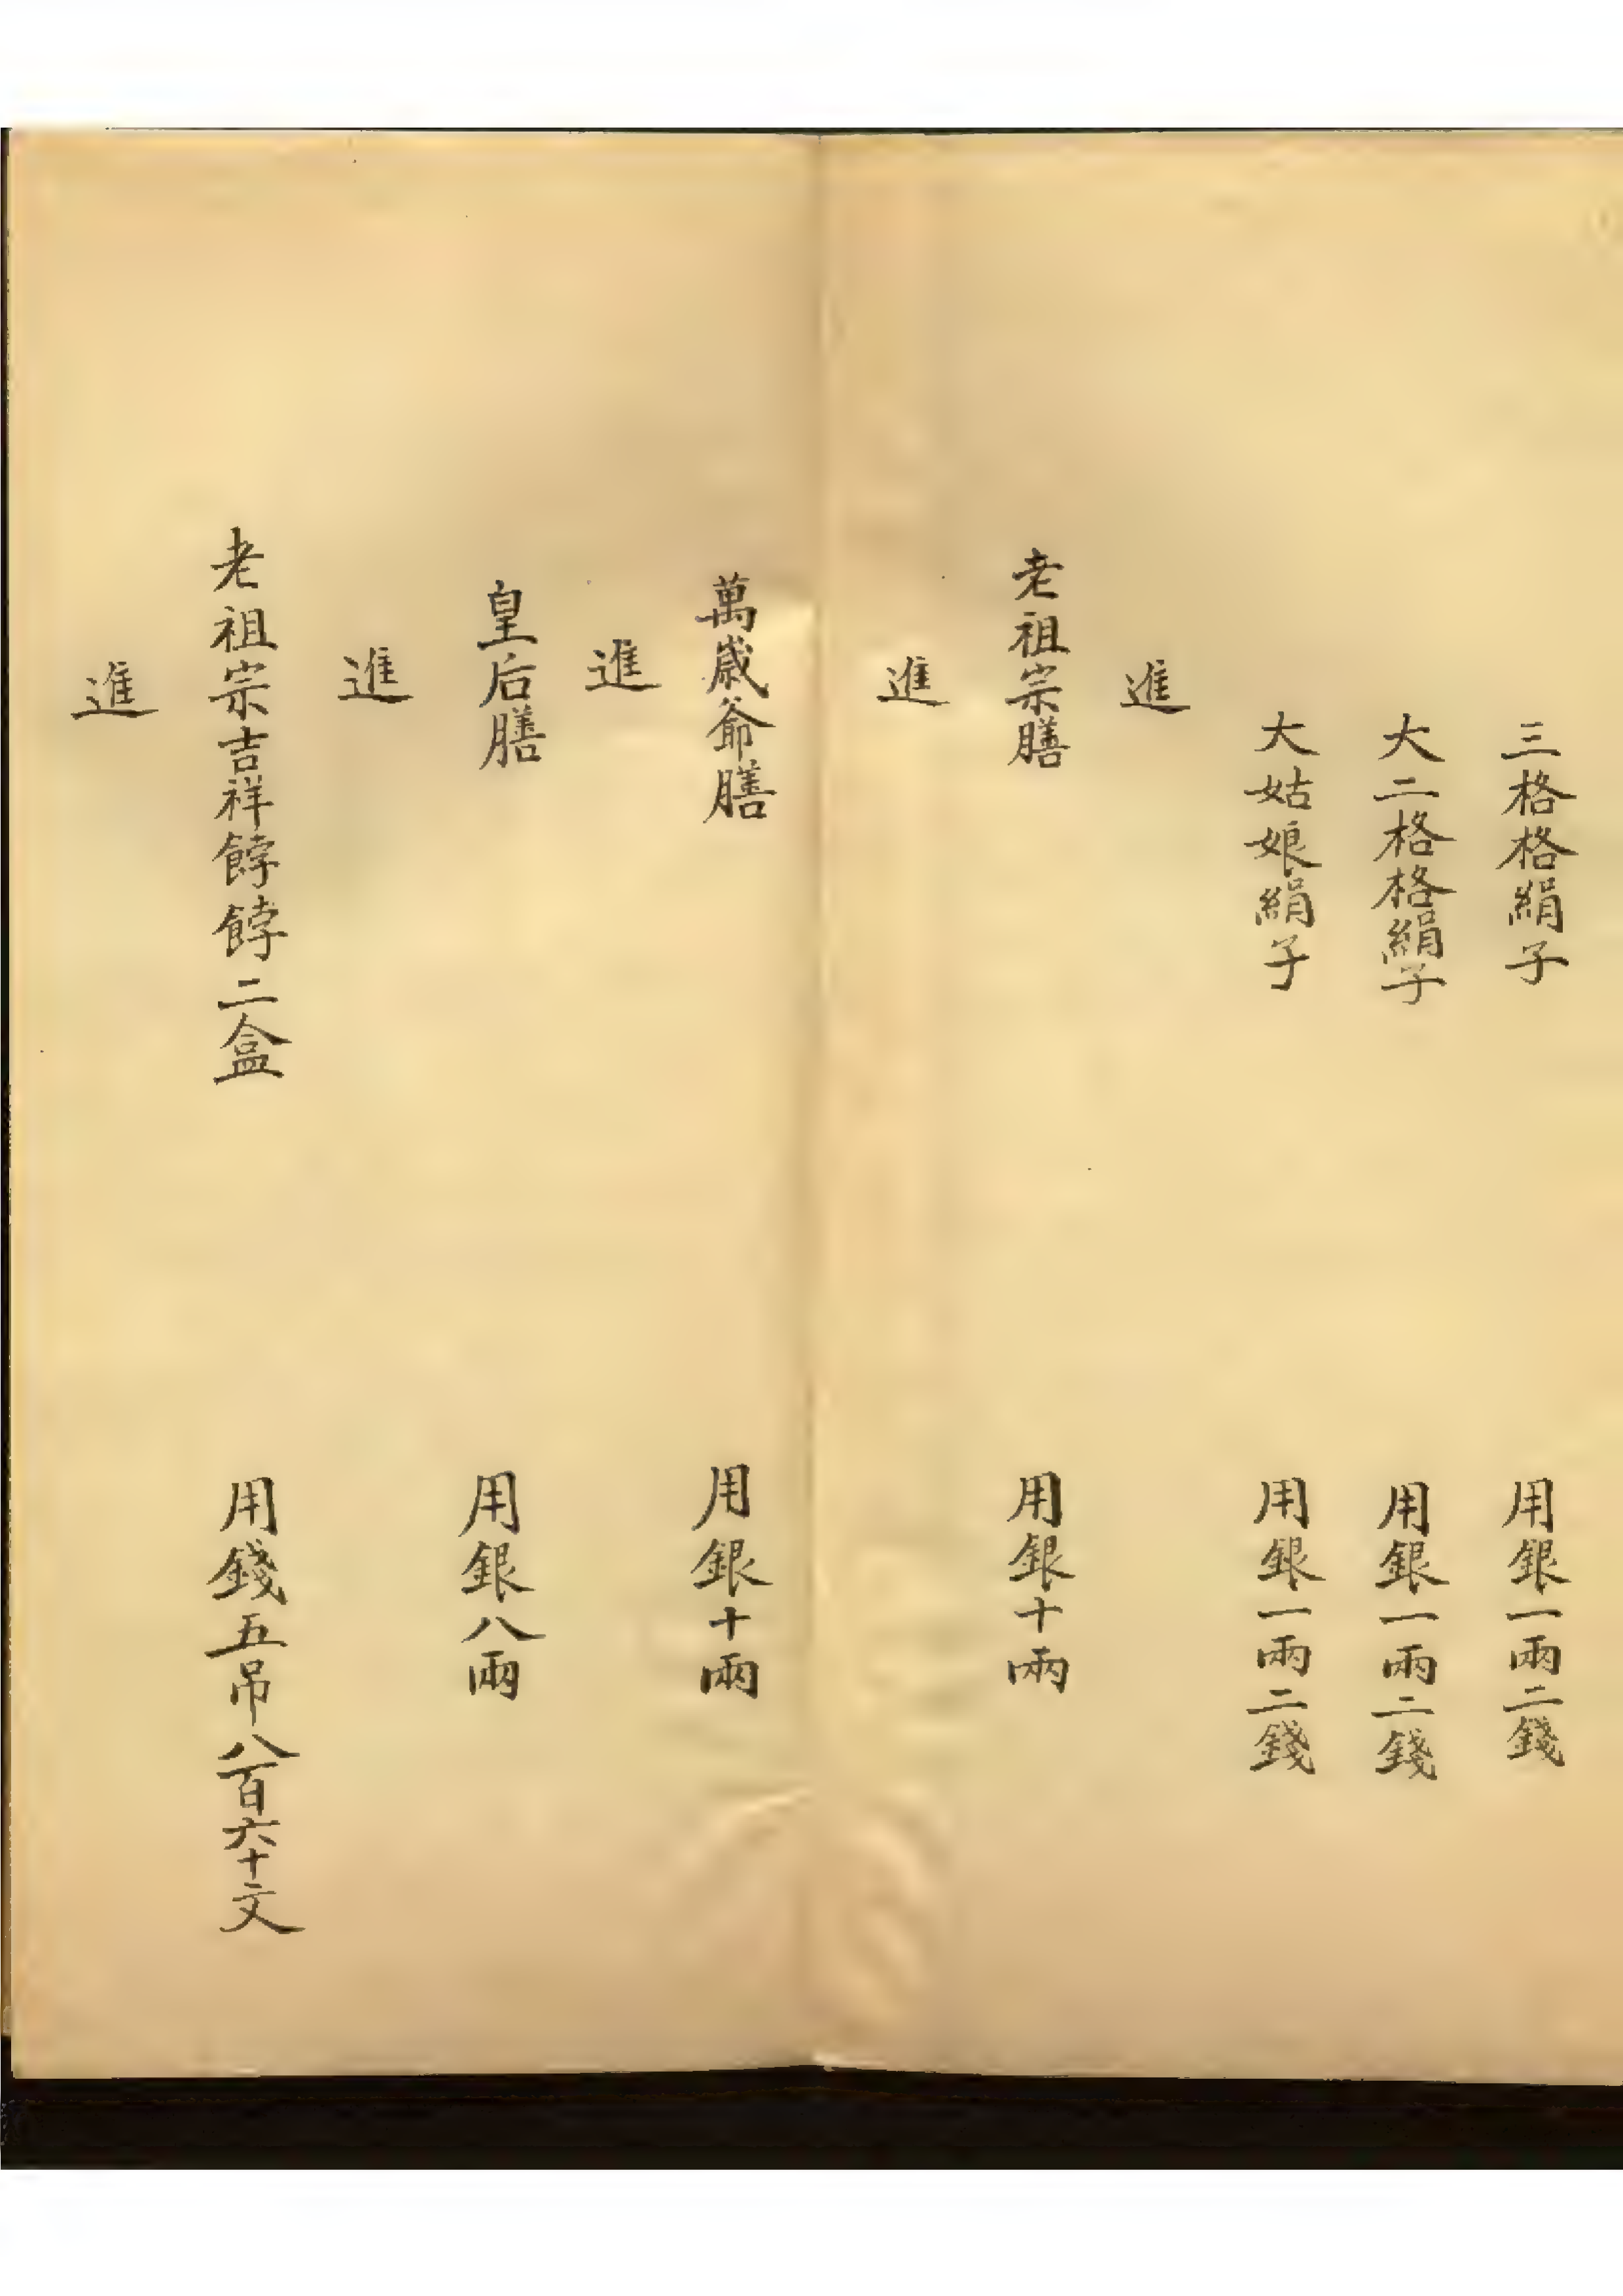 三格格絹子 用銀一兩二錢
大二格格絹子 用銀一兩二錢
大姑娘絹子 用銀一兩二錢
進
老祖宗膳 用銀十兩
進
萬歲爺膳 用銀十兩
進
皇后膳 用銀八兩
進
老祖宗吉祥餑餑二盒 用錢五吊八百六十文
進